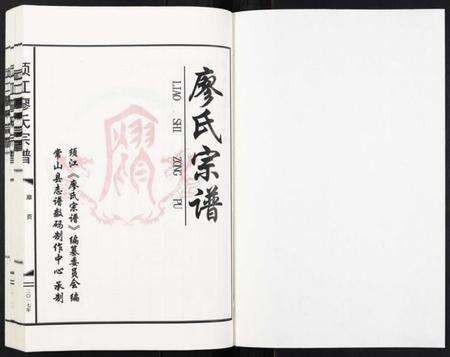 廖氏宗谱
LIAO SHI ZONG PU
须江《廖氏宗谱》编纂委员会编
常山县志谱数码制作中心承制
须江廖氏宗谱
扉页
二〇一七年